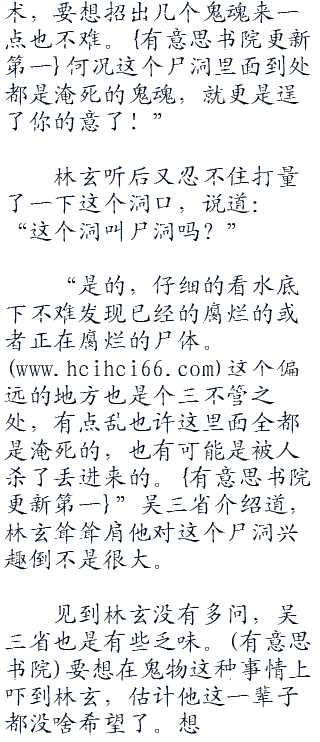 术，要想招出几个鬼魂来一
点也不难。{有意思书院更新
第一}何况这个尸洞里面到处
都是淹死的鬼魂，就更是逞
了你的意了！”
林玄听后又忍不住打量
了一下这个洞口，说道：
“这个洞叫尸洞吗？”
“是的，仔细的看水底
下不难发现已经的腐烂的或
者正在腐烂的尸体。
(www.hcihci66.com)这个偏
远的地方也是个三不管之
处，有点乱也许这里面全都
是淹死的，也有可能是被人
杀了丢进来的。{有意思书院
更新第一}”吴三省介绍道，
林玄耸耸肩他对这个尸洞兴
趣倒不是很大。
见到林玄没有多问，吴
三省也是有些乏味。(有意思
书院)要想在鬼物这种事情上
吓到林玄，估计他这一辈子
都没啥希望了。想